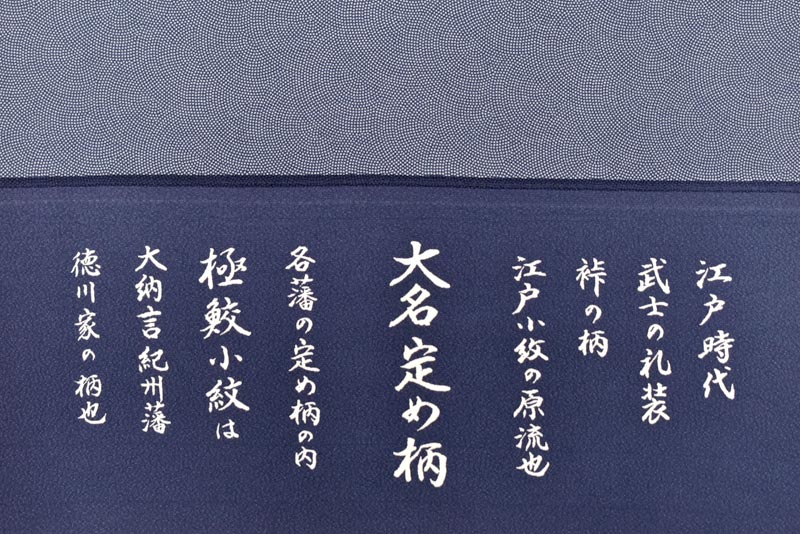 江戸時代
武士の礼装
裃の柄
江戸小紋の原流也
大名定め柄
各藩の定め柄の内
極鮫小紋は
大納言紀州藩
徳川家の柄也